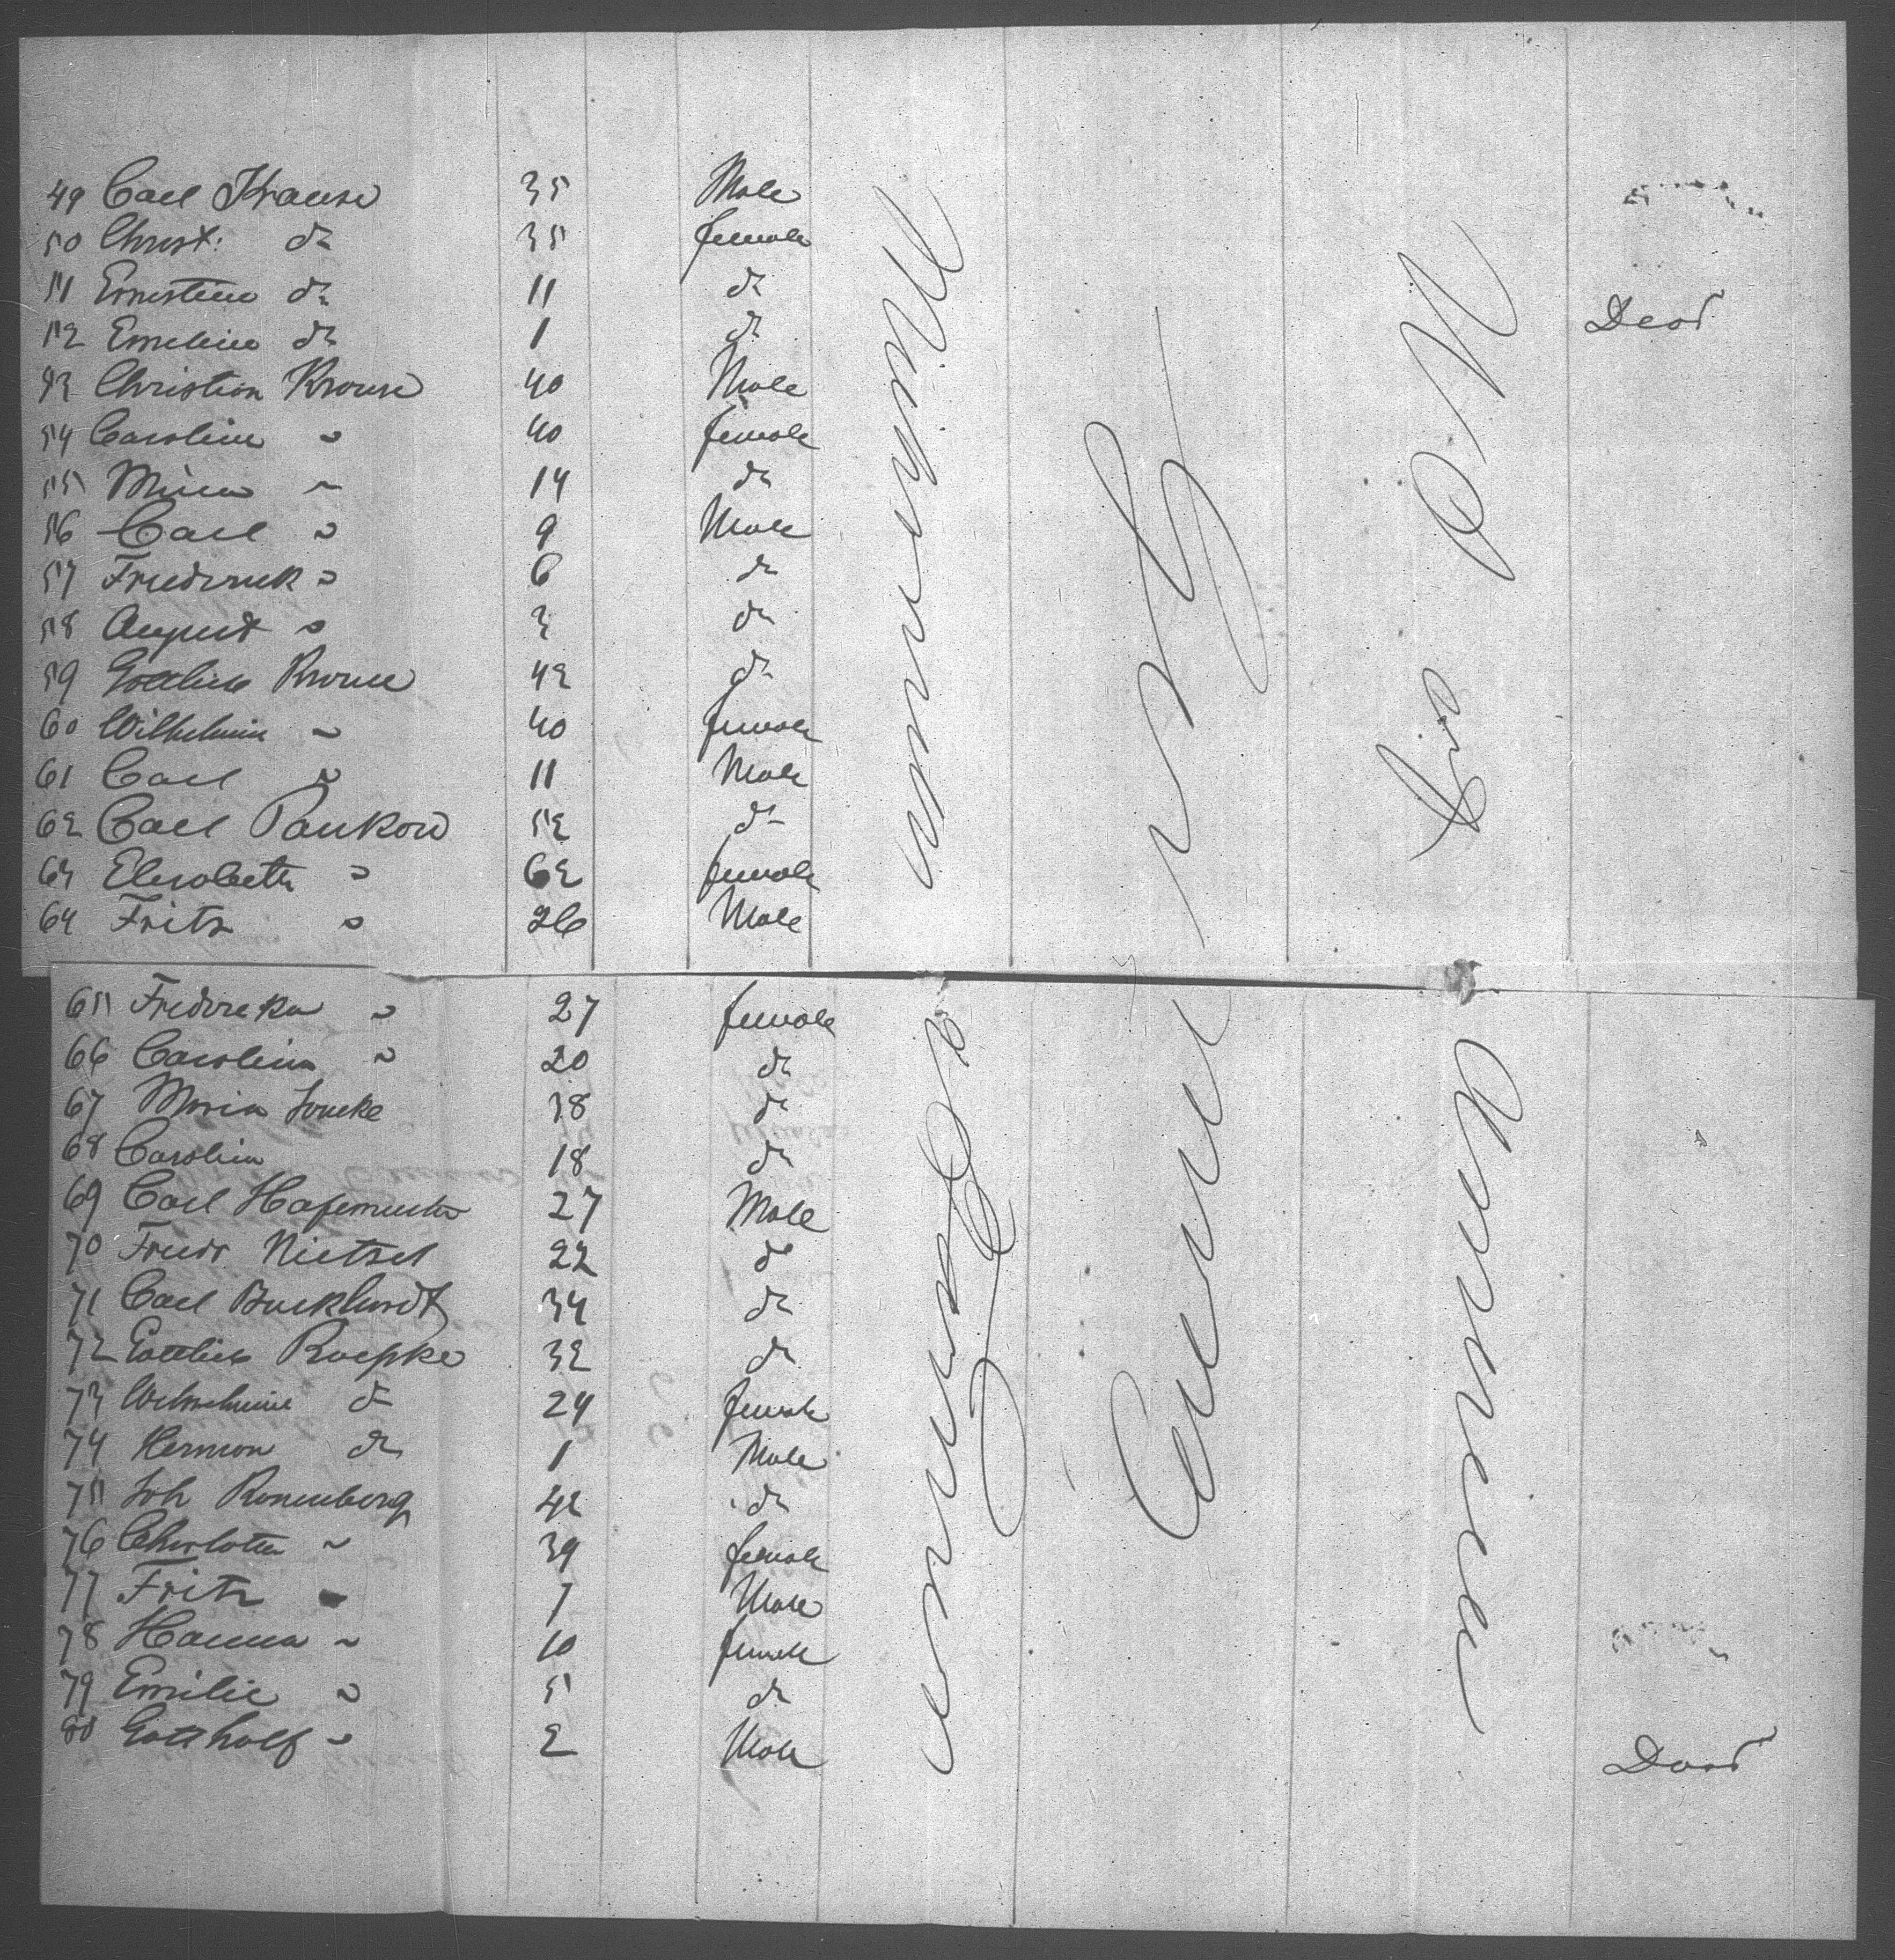 49 Carl Krause 35 Male
50 Christ: do 35 female
51 Ernestine do 11 do
52 Emeline do 1 do Dead
53 Christian Krause 40 Male
54 Caroline " 40 female
55 Mina " 14 do
56 Carl " 9 Male
57 Friederick " 6 do
58 August " 3 do
59 Gottlieb Krause 42 do
60 Wilhelmin " 40 female
61 Carl " 11 Male
62 Carl Pankow 52 do
63 Elisabeth " 62 female
64 Fritz " 26 Male
65 Fredereka " 27 female
66 Carolina " 20 do
67 Maria 38 do
68 Carolina 18 do
69 Carl Hafemeister 27 Male
70 Friedr Nietzel 22 do
71 Carl Burkhardt 34 do
72 Gottlieb Roepke 32 do
73 Wilhelmine do 24 female
74 Herman do 1 Male
75 Joh Ronenberg 42 do
76 Charlotte " 39 female
77 Fritz " 7 Male
78 Hanna " 10 female
79 Emilie " 5 do
80 Gotthalf " 2 Male Dead